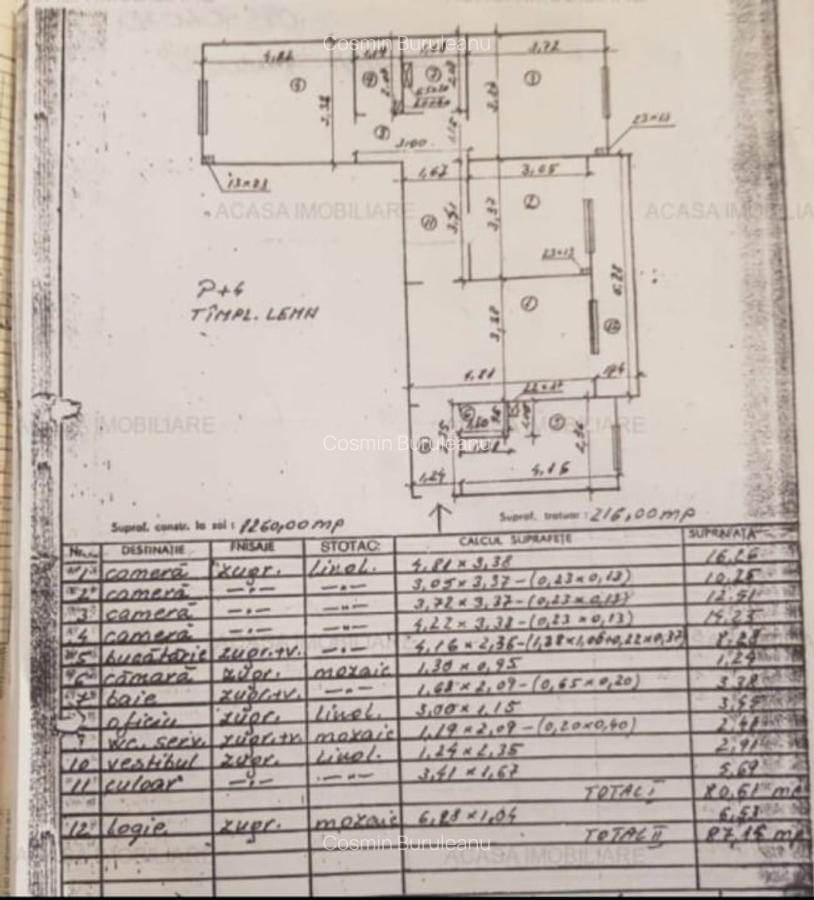 Cosmin Buruleanu
3,72
4,82
3,38
2,08
3,00
1,15
23×13
13×23
1,67
3,05
3,41
3,37
ACASA IMOBILIARE
ACASA IMOBILIARE
23×13
6,28
P+4
TÎMPL. LEMN
3,38
4,81
22×37
ACASA IMOBILIARE
ACASA IMOBILIARE
Cosmin Buruleanu
2,36
1,24
4,16
Supraf. constr. la sol : 1260,00 mp
Supraf. trotuar : 216,00 mp
Nr. DESTINAȚIE FINISAJE STOTAC: CALCUL SUPRAFEȚE SUPRAFAȚA
1 cameră zugr. Linol. 4,81 × 3,38 16,26
2 cameră —"— —"— 3,05 × 3,37 – (0,23×0,13) 10,25
3 cameră —"— —"— 3,72 × 3,37 – (0,23×0,13) 12,51
4 cameră —"— —"— 4,22 × 3,38 – (0,23×0,13) 14,23
5 bucătărie zugr.+v. —"— 4,16 × 2,36 – (1,38×1,06+0,22×0,37) 8,28
6 cămară zugr. mozaic 1,30 × 0,95 1,24
7 baie zugr.+v. —"— 1,68 × 2,09 – (0,65×0,20) 3,38
oficiu zugr. Linol. 3,00 × 1,15 3,45
9 wc. serv. zugr.+v. mozaic 1,19 × 2,09 – (0,20×0,40) 2,41
10 vestibul zugr. Linol. 1,24 × 2,35 2,91
11 culoar —"— —"— 3,41 × 1,67 5,69
TOTAL I 80,61 mp
12 logie zugr. mozaic 6,28 × 1,04 6,53
TOTAL II 87,15 mp
Cosmin Buruleanu
ACASA IMOBILIARE
ACASA IMOBILIARE